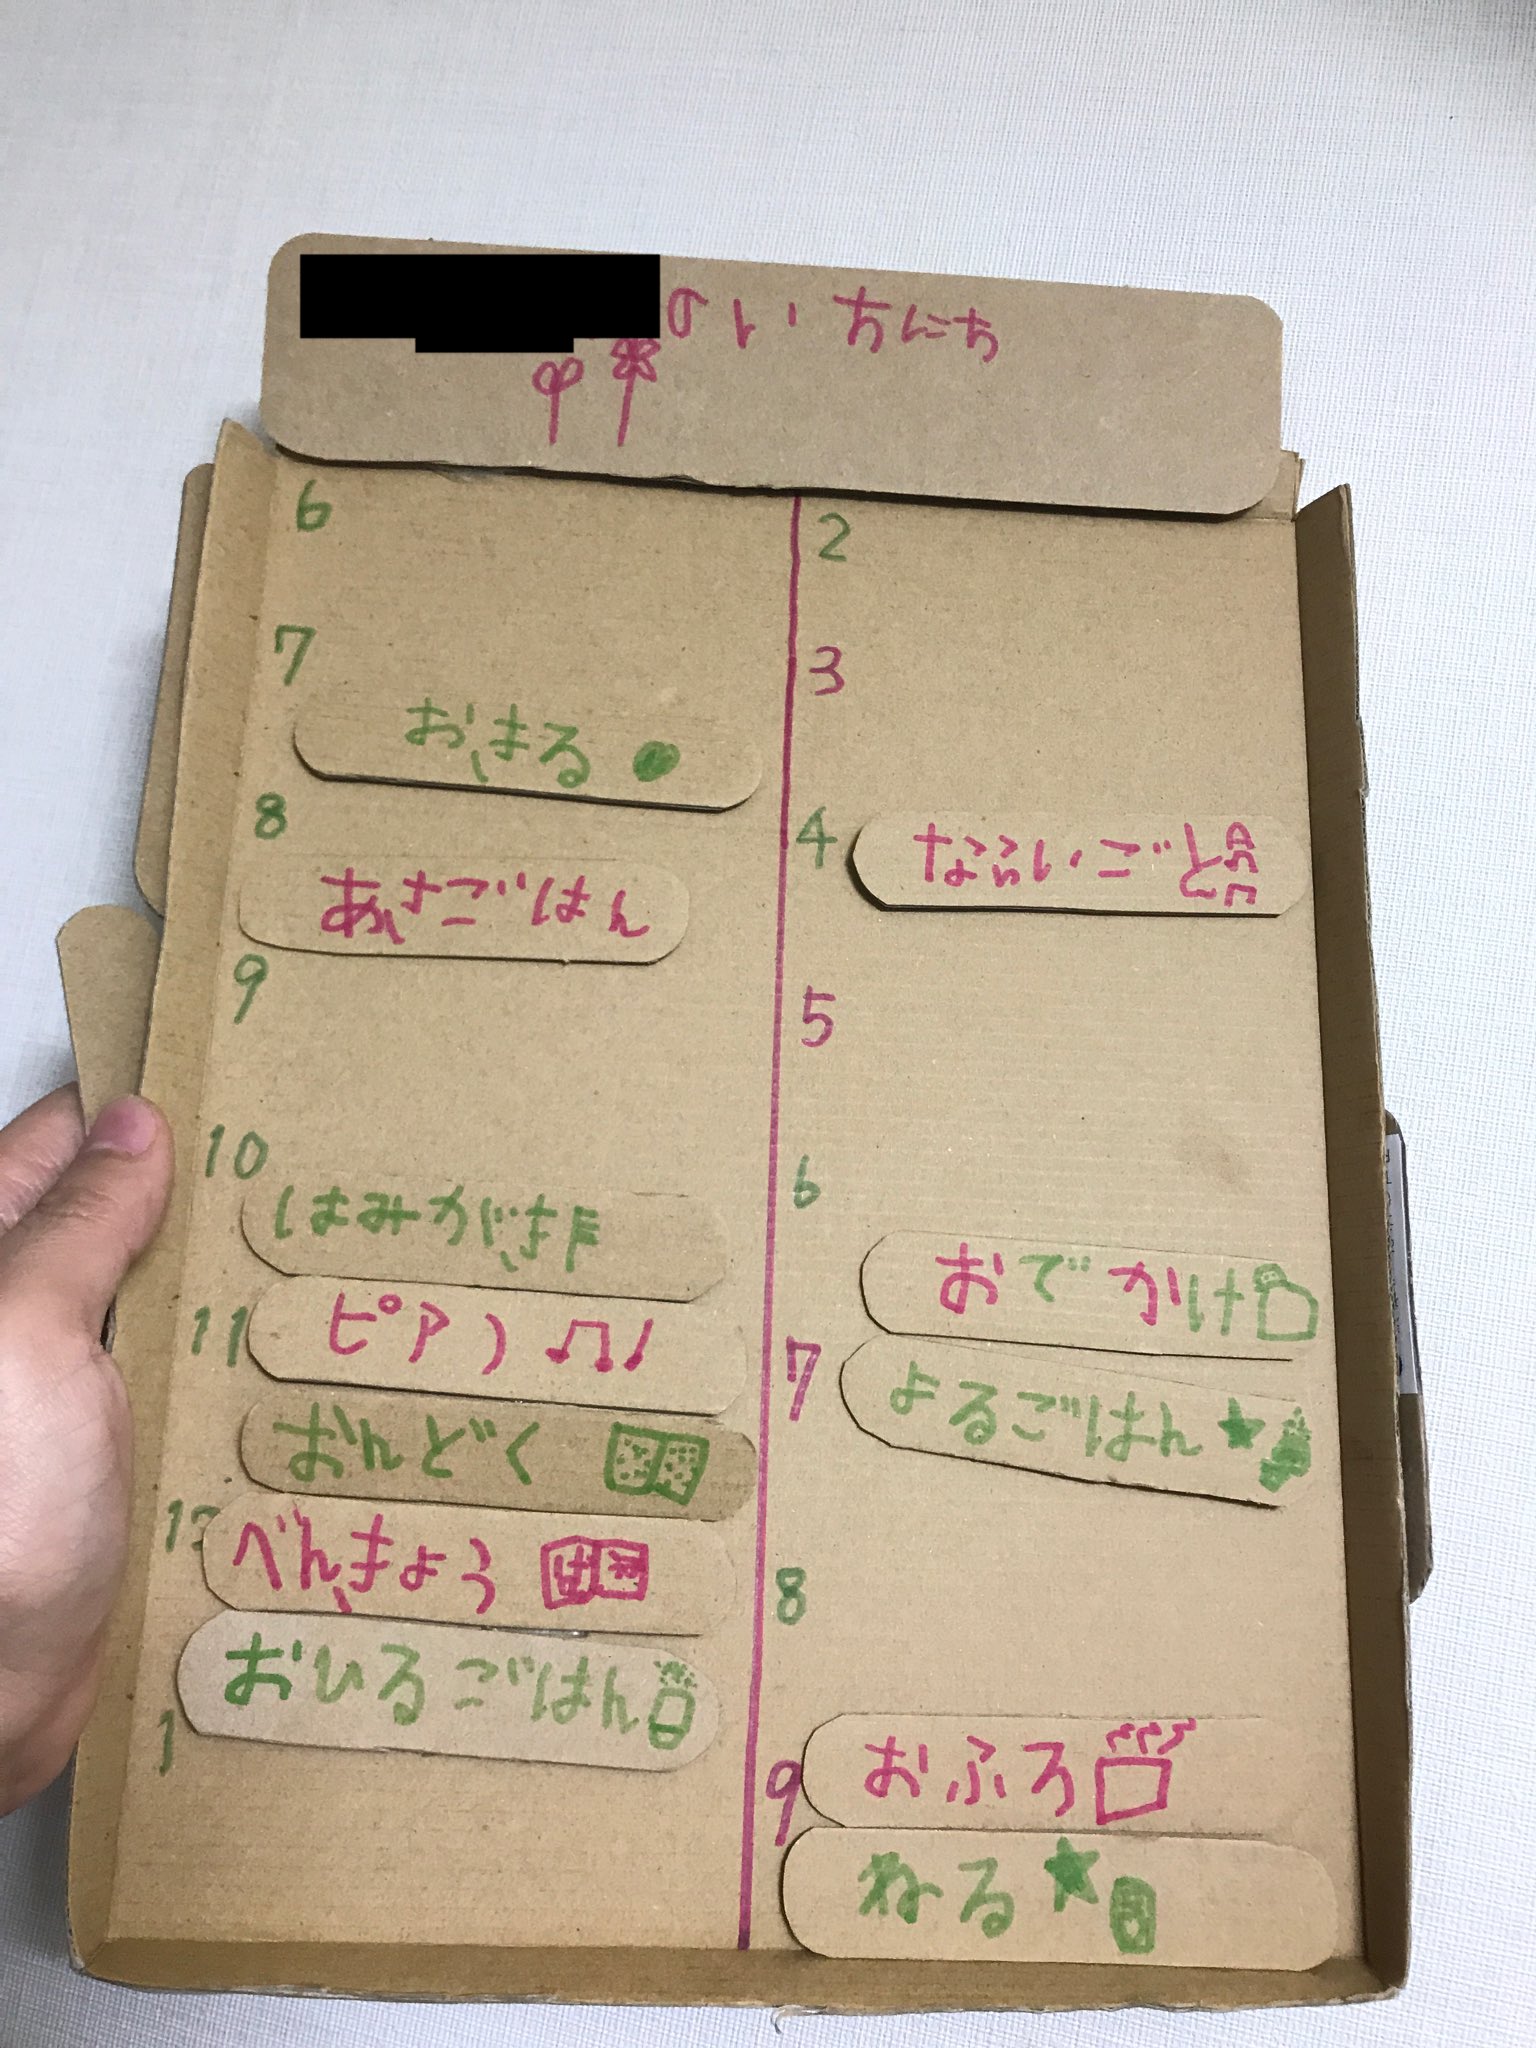 のいちにち
6
7
おきる
8
あさごはん
9
10
はみがき
11
ピアノ
おんどく
12
べんきょう
おひるごはん
1
2
3
4
ならいごと
5
6
おでかけ
7
よるごはん
8
9
おふろ
ねる